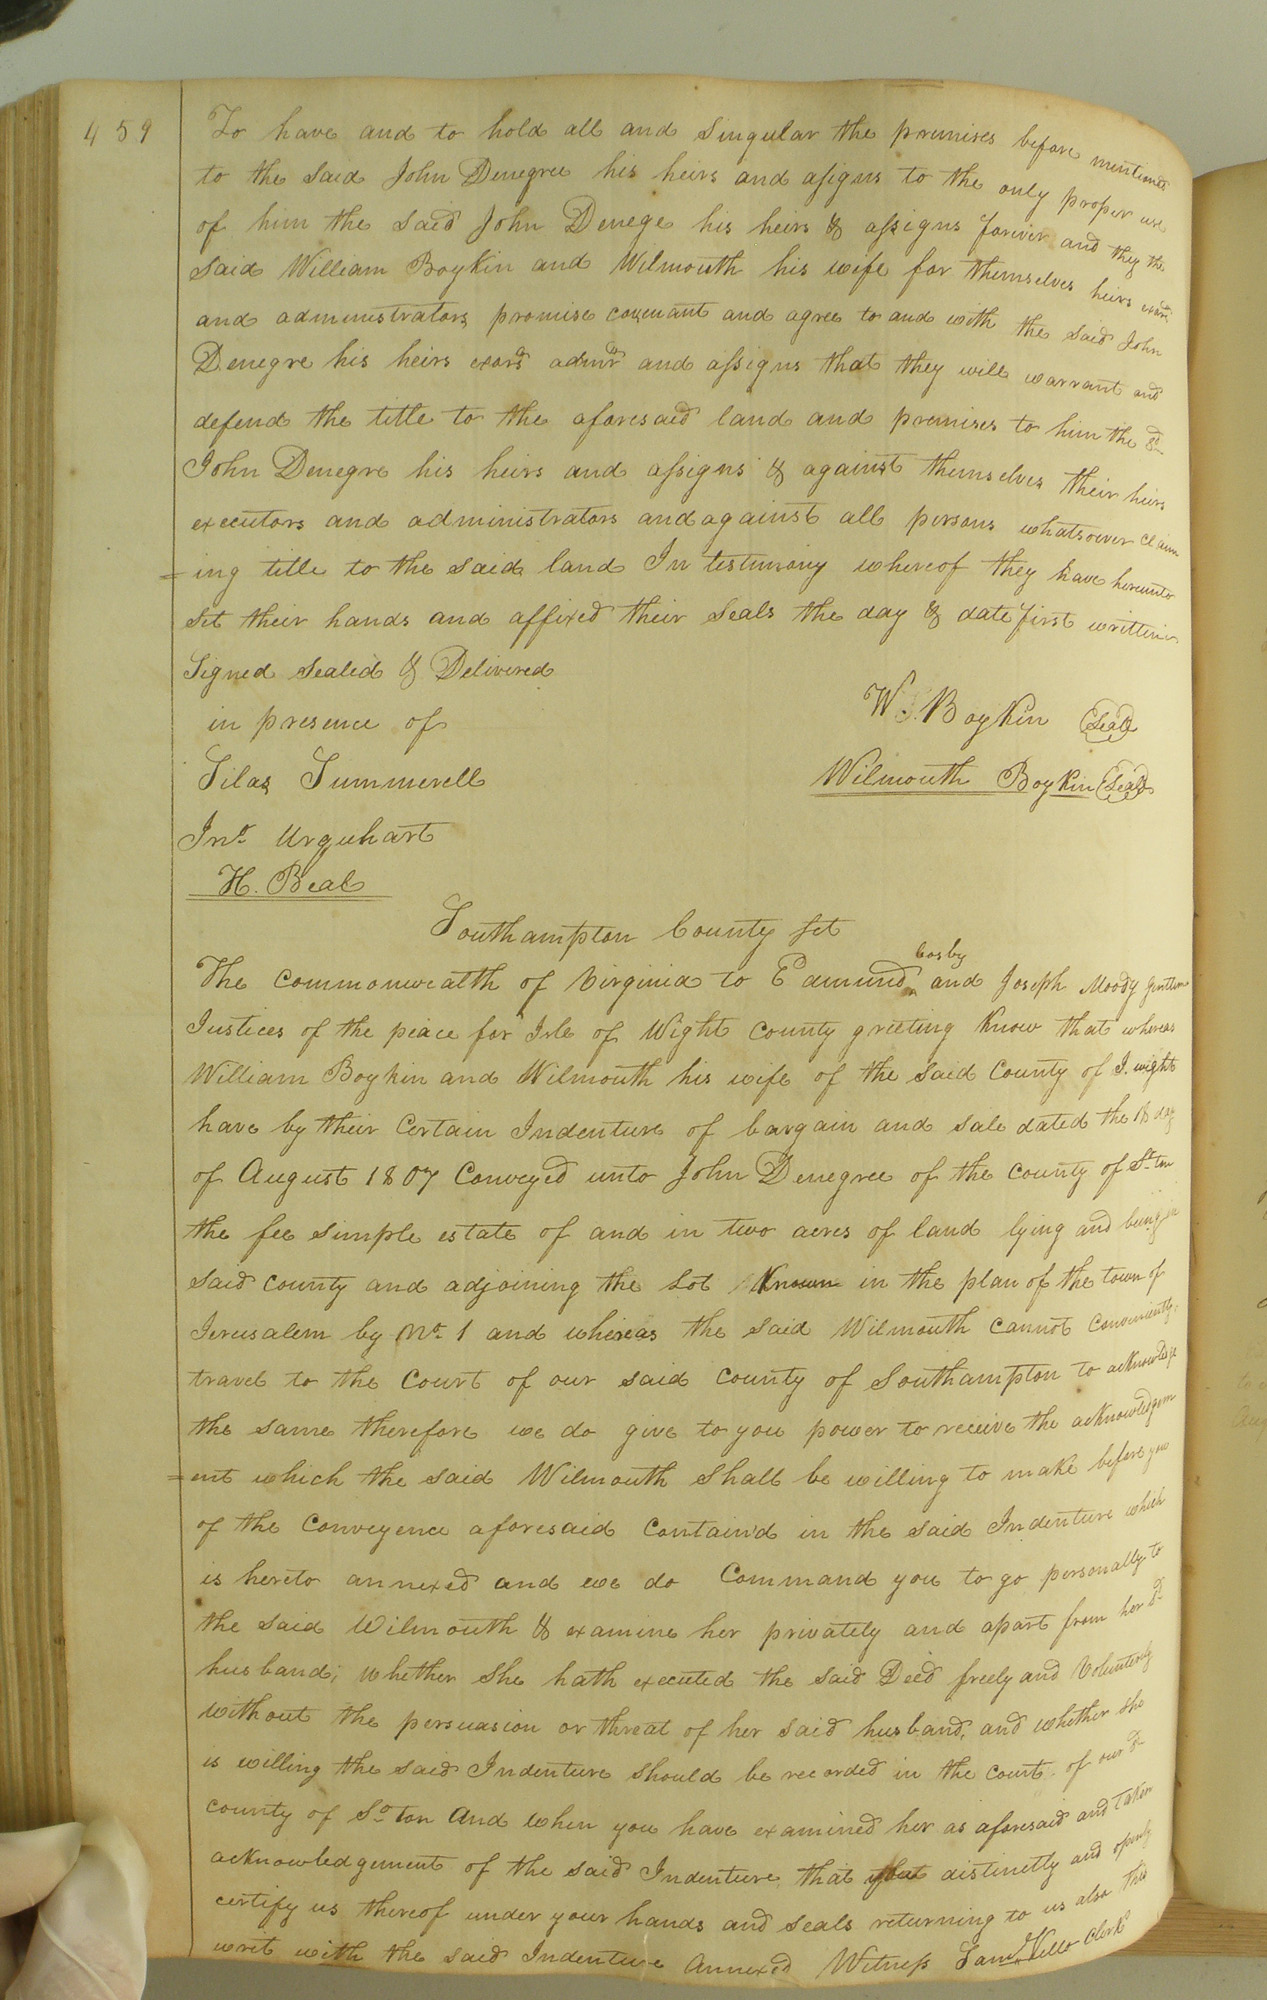 459
To have and to hold all and Singular the premises before mentioned
to the said John Denegree his heirs and assigns to the only proper use
of him the said John Denege his heirs & assigns forever and they the
said William Boykin and Wilmouth his wife for themselves heirs exors
and administrators promise covenant and agree to and with the said John
Denegre his heirs exors admrs and assigns that they will warrant and
defend the title to the aforesaid land and premises to him the sd
John Denegre his heirs and assigns & against themselves their heirs
executors and administrators and against all persons whatsoever claim
=ing title to the said land In testimony whereof they have hereunto
set their hands and affixed their Seals the day & date first written
Signed Sealed & Delivered
in presence of
W. Boykin (Seal)
Silas Summerell
Wilmouth Boykin (Seal)
Jno. Urquhart
H. Beal
Southampton County Sct
The commonwealth of Virginia to Edmund Cosby and Joseph Moody gentlemen
Justices of the peace for Isle of Wight county greeting Know that whereas
William Boykin and Wilmouth his wife of the said County of I. wight
have by their Certain Indenture of bargain and sale dated the 18 day
of August 1807 Conveyed unto John Denegree of the county of So. ton
the fee simple estate of and in two acres of land lying and being in
said county and adjoining the Lot Known in the plan of the town of
Jerusalem by No. 1 and whereas the said Wilmouth cannot conveniently
travel to the Court of our said county of Southampton to acknowledge
the same therefore we do give to you power to receive the acknowledgem
=ent which the said Wilmouth Shall be willing to make before you
of the Conveyence aforesaid Contain'd in the said Indenture which
is hereto annexed and we do Command you to go personally to
the said Wilmouth & examine her privately and apart from her sd
husband; whether She hath executed the said Deed freely and Voluntarily
without the persuasion or threat of her said husband, and whether she
is willing the said Indenture should be recorded in the court of our sd
county of So. ton And when you have examined her as aforesaid and taken
acknowledgement of the said Indenture that you distinctly and openly
certify us thereof under your hands and seals returning to us also this
writ with the said Indenture Annexed Witness Saml. Kello Clerk